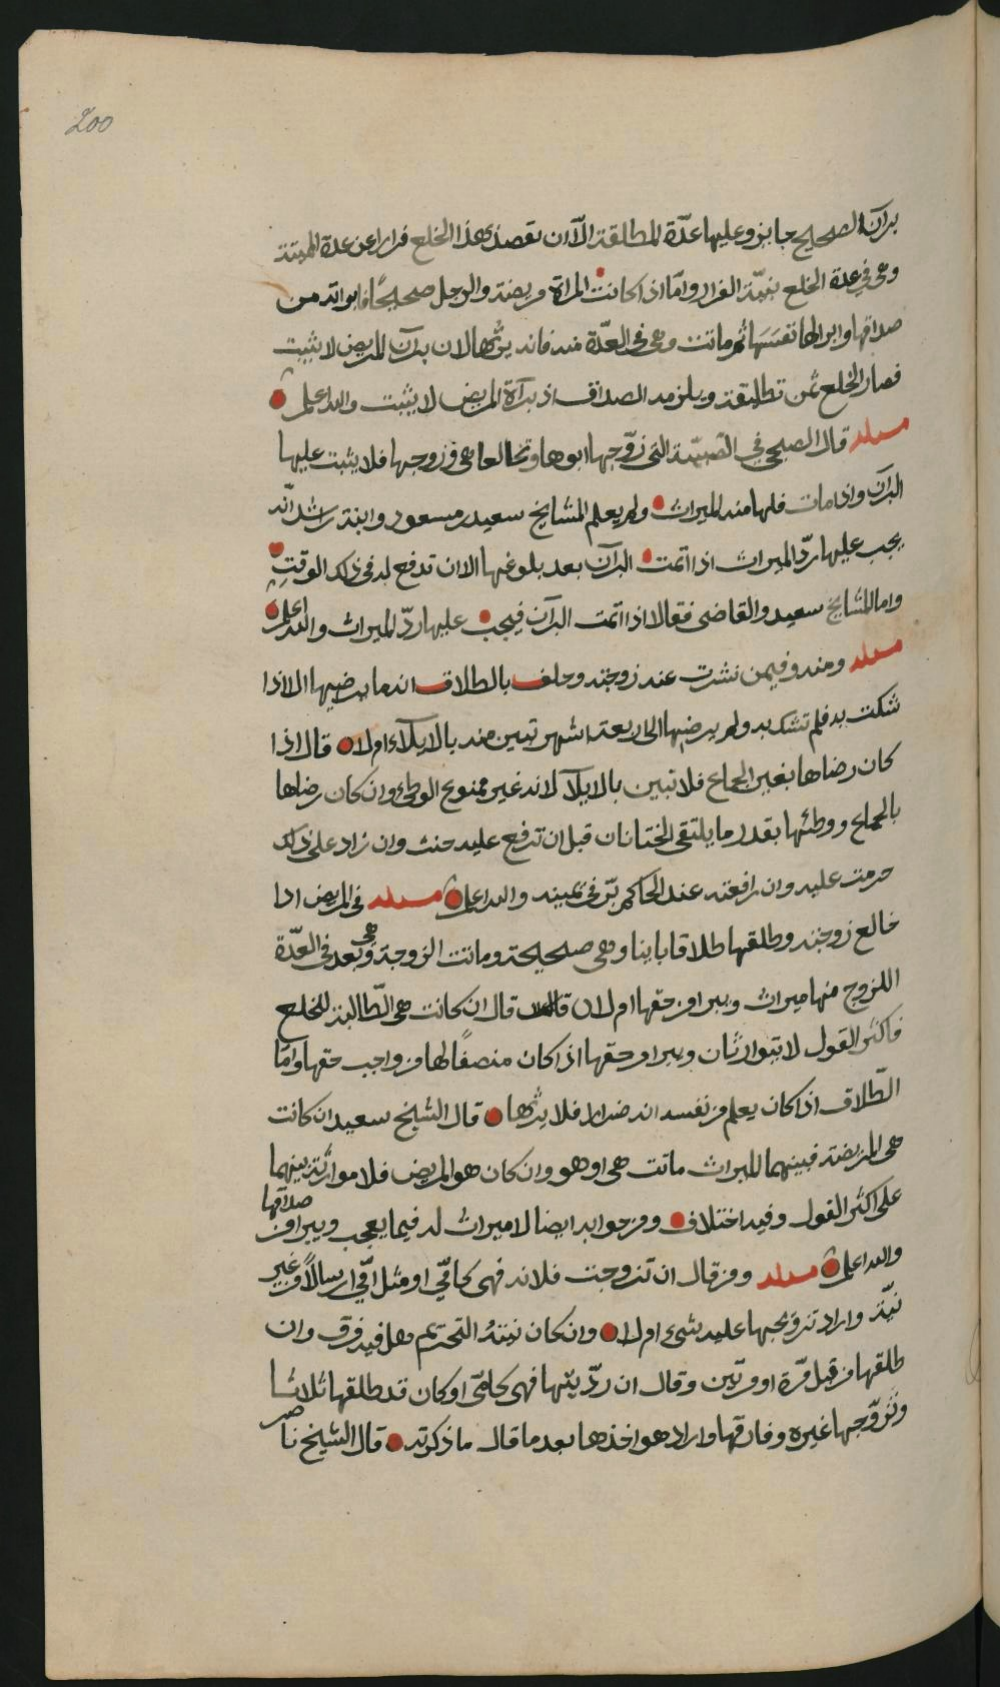 200
برآن الصحيح جايز وعليها عدّة المطلقة الّا ان تقصد بهذا الخلع فرارا عن عدة المميتة
وهي في عدة الخلع بنيّة الفرار وامّا اذا كانت المراة مريضة والرجل صحيحًا فابراته من
صداقها وابرالها نفسَهَا ثم ماتت وهي في العدّة منه فانه يرثها لان برآن المريض لا يثبت
فصار الخلع ثمن تطليقة ويلزمه الصداق اذ برآة المريض لا يثبت والله اعلم
مسلة قال الصبحي في الصّبيّة التي زوّجها ابوها وتخالعا هي وزوجها فلا يثبت عليها
البرآن واذا مات فلها منه الميراث ولم يعلم المشايخ سعيد ومسعود وابنة راشد انّه
يجب عليها ردّ الميراث اذا اتمت البرآن بعد بلوغها الا ان تدفع له في ذلك الوقتِ
واما المشايخ سعيد والقاضي فقالا اذا اتمت البرآن فيجب عليها ردّ الميراث والله اعلم
مسلة ومنه وفيمن نشزت عنه زوجته وحلف بالطلاق انه ما يرضيها الا اذا
شكت به فلم تشك به ولم يرضها الى اربعة اشهر تبين منه بالايلآء ام لا قال اذا
كان رضاها بغير الجماع فلا تبين بالايلآ لانه غير ممنوع الوطئ وان كان رضاها
بالجماع ووطئها بقدر ما يلتقي الختانان قبل ان ترفع عليه حنث وان زاد على ذلك
حرمت عليه وان رافعته عند الحاكم برّ في يمينه والله اعلم مسلة في المريض اذا
خالع زوجته وطلقها طلاقا باينا وهي صحيحة وماتت الزوجة وهي بعد في العدّة
اللزوج منها ميراث ويبرا من حقها ام لا قال ان كانت هي الطّالبة للخلع
فاكثر القول لا يتوارثان ويبرا من حقها اذا كان منصفًا لها من واجب حقها وامّا
الطّلاق اذا كان يعلم من نفسه انه ضرار فلا يرثها قال الشيخ سعيد ان كانت
هي المريضة فبينهما الميراث ماتت هي او هو وان كان هو المريض فلا موارثة بينهما
على اكثر القول وفيه اختلاف ومن جوابه ايضا لا ميراث له فيما يعجب ويبرا من صداقها
والله اعلم مسلة ومن قال ان تزوجت فلانه فهي كامّي او مثل امّي ارسالًا من غير
نيّة واراد تزويجها عليه شيء ام لا وان كان نيتهُ التحريم هل فيه فرق وان
طلقها من قبل مرّة او مرّتين وقال ان ردّيتها فهي كامّي او كان قد طلقها ثلاثا
وتزوّجها غيره وفارقها واراد هو اخذها بعد ما قال ما ذكرته قال الشيخ ناصر